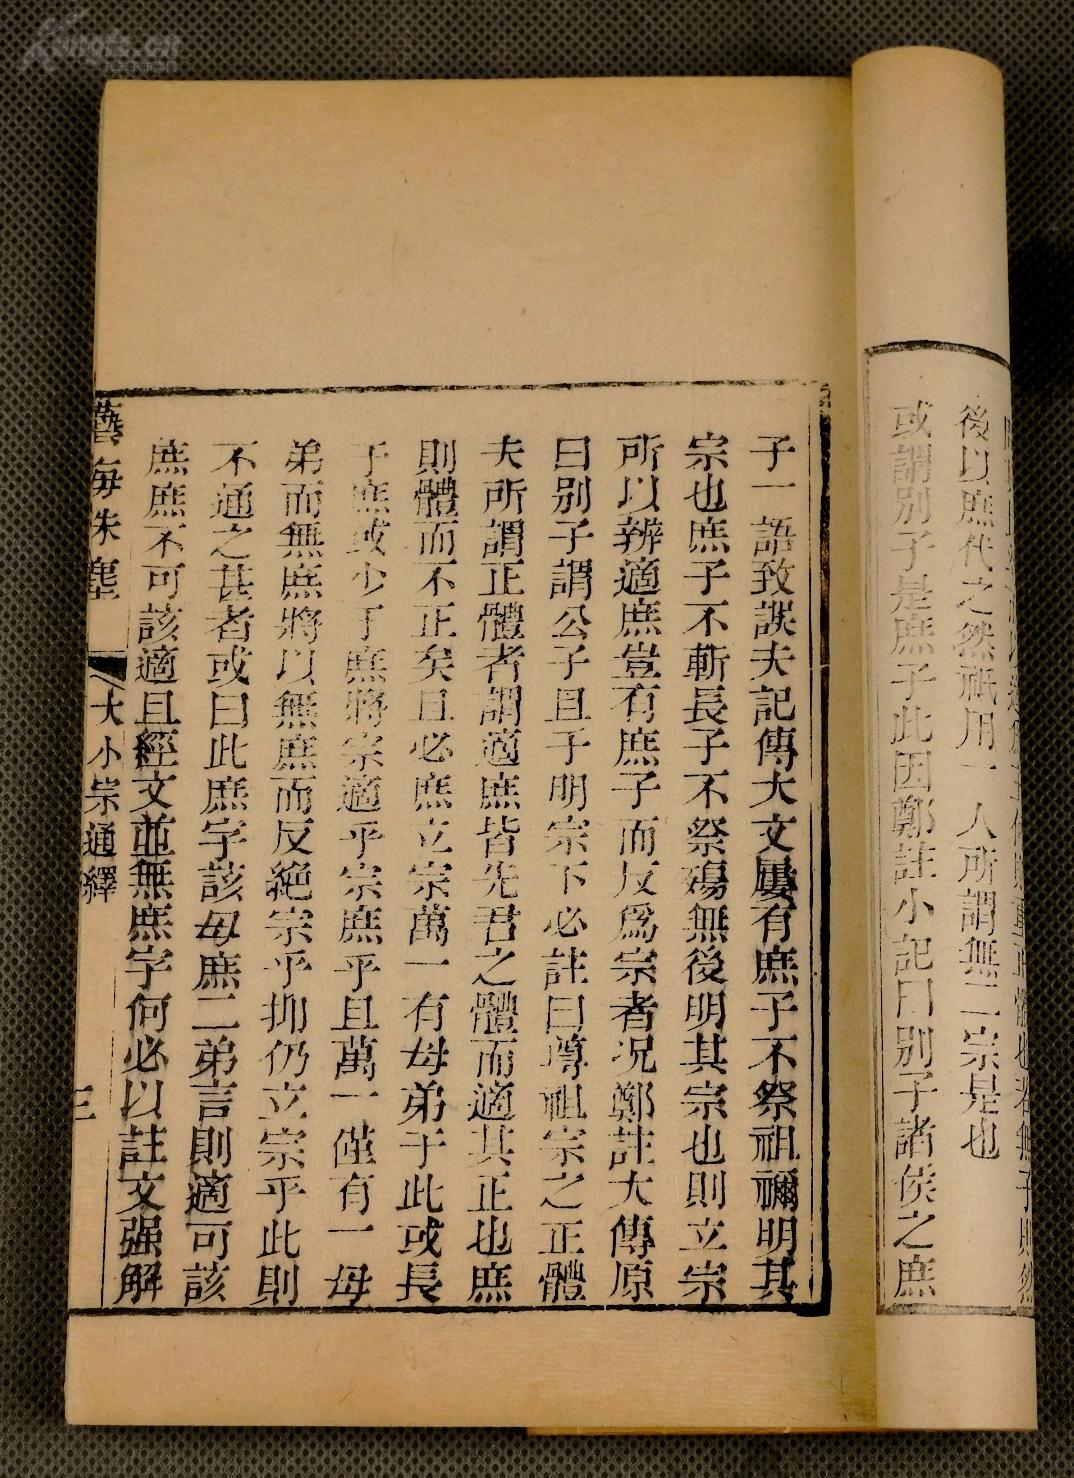 後以庶代之然祇用一人所謂無二宗是也
或謂別子是庶子此因鄭註小記曰別子諸侯之庶
子一語致誤夫記傳大文屢有庶子不祭祖禰明其
宗也庶子不斬長子不祭殤無後明其宗也則立宗
所以辨適庶豈有庶子而反爲宗者况鄭註大傳原
曰別子謂公子且于明宗下必註曰尊祖宗之正體
夫所謂正體者謂適庶皆先君之體而適其正也庶
則體而不正矣且必庶立宗萬一有母弟于此或長
于庶或少于庶將宗適乎宗庶乎且萬一僅有一母
弟而無庶將以無庶而反絶宗乎抑仍立宗乎此則
不通之甚者或曰此庶字該母庶二弟言則適可該
庶庶不可該適且經文並無庶字何必以註文强解
藝海珠塵
大小宗通繹
三
Kongfz.cn